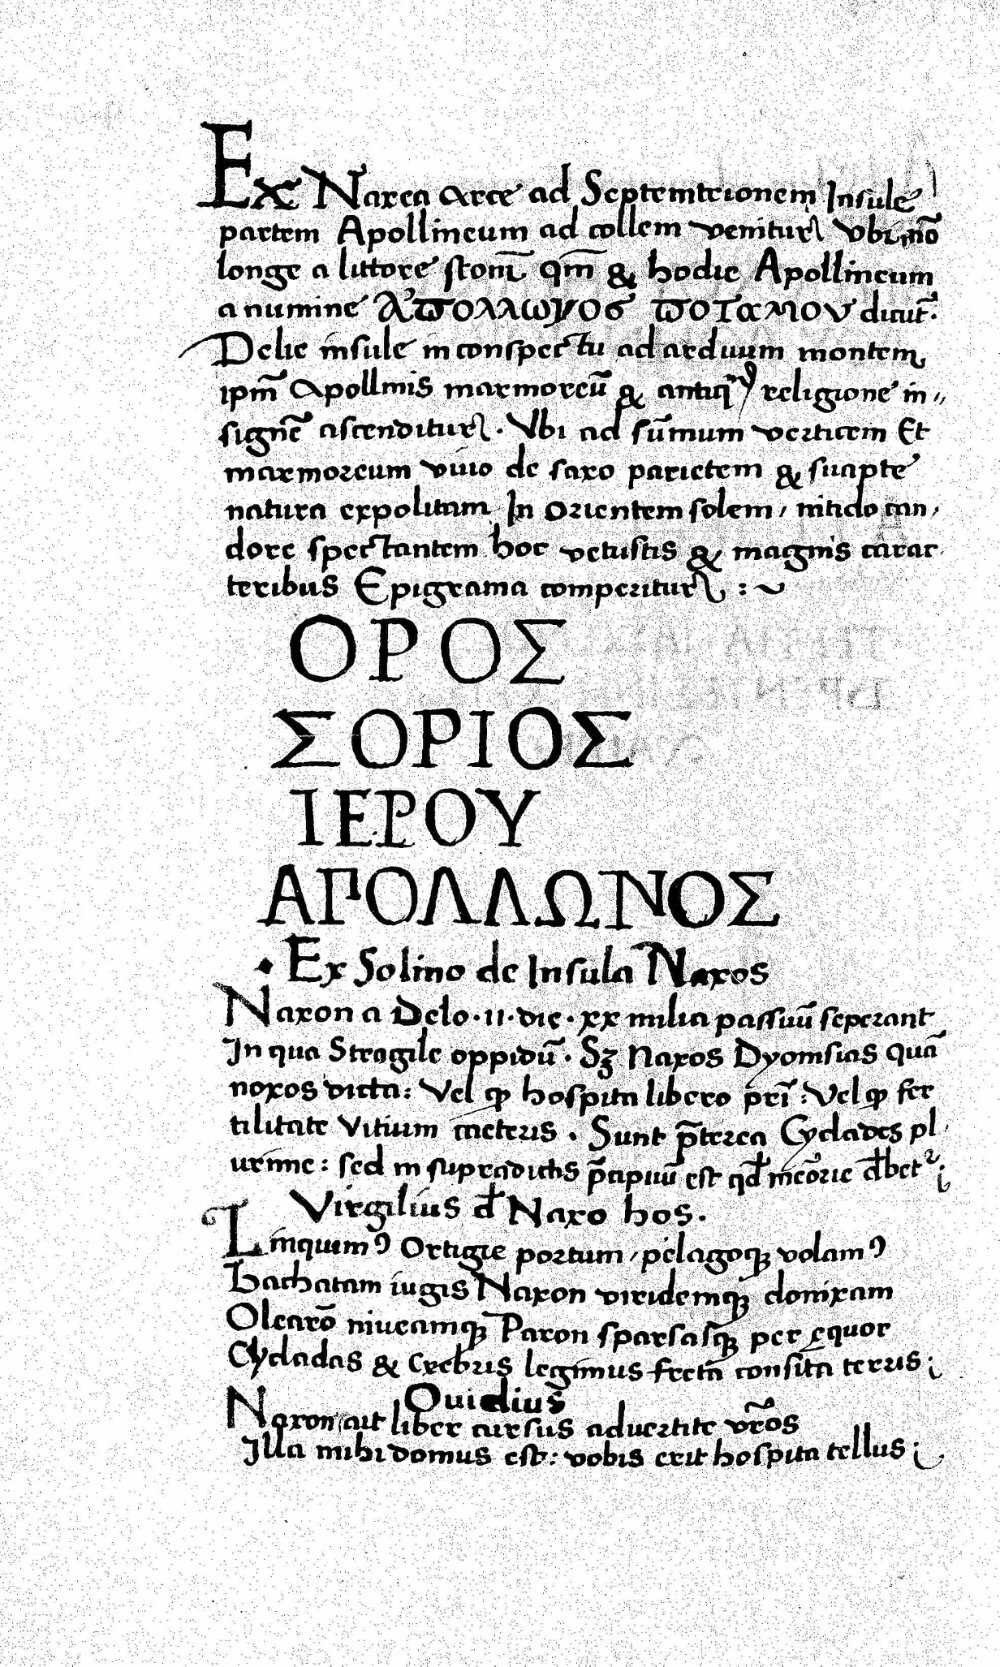 Ex Naxea Arce ad Septemtrionem Insule
partem Apollineum ad collem venitur Vbi nõ
longe a littore stom̃ qm̃ & hodie Apollineum
a numine Ἀπολλωνος ποταμου dicũt.
Delie insule in conspectu ad arduum montem
ipm̃ Apollinis marmoreũ & religione in,,
signẽ ascenditur. Vbi ad sũmum verticem Et
marmoreum viuo de saxo parietem & suapte
natura expolitam In orientem solem, nitido can,
dore spectantem hoc vetustis & magnis carac
teribus Epigrama comperitur : ~
ΟΡΟΣ
ΣΟΡΙΟΣ
ΙΕΡΟΥ
ΑΠΟΛΛΩΝΟΣ
· Ex Solino de Insula Naxos
Naxon a Delo · 11 · die · xx milia passuũ seperant
In qua Strogile oppidũ · Sꝫ Naxos Dyonisias quã
noxos dicta: Vel ꝙ hospita libero pr̃i : Vel ꝙ fer
tilitate Vitium caeteris . Sunt p̃terea Cyclades pl
urime : sed in supradictis p̃cipuũ est qđ
Virgilius đ Naxo hos.
Linquimꝰ Ortigie portum, pelagoqꝫ volamꝰ
Bachatam iugis Naxon viridemqꝫ donixam
Olearõ niueamqꝫ Paron sparsasqꝫ per equor
Cycladas & crebris legimus freta consita terris ;
Ouidius
Naxon, ait liber cursus aduertite vr̃os
Illa mihi domus est : vobis erit hospita tellus ;